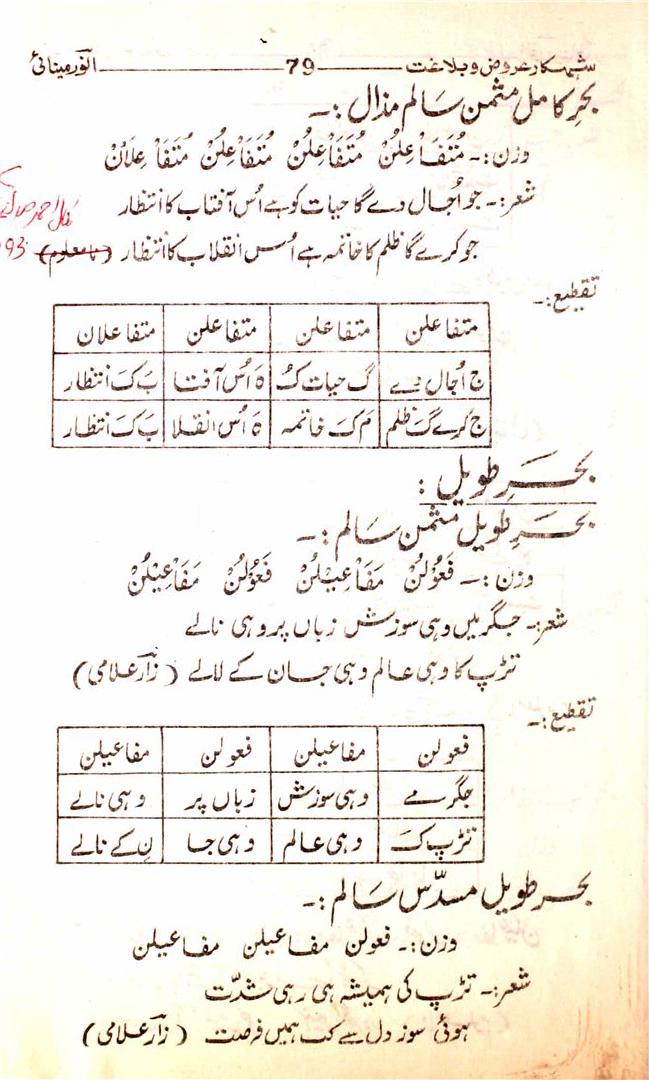 شہکار عروض و بلاغت ——— 79 ——— انور مینائی
بحرِ کامل مثمن سالم مذال :۔
وزن :۔ مُتَفَاعِلُنْ مُتَفَاعِلُنْ مُتَفَاعِلُنْ مُتَفَاعِلَانْ
شعر :۔ جو اُجال دے گا حیات کو ہے اُس آفتاب کا انتظار
جو کرے گا ظلم کا خاتمہ ہے اُس انقلاب کا انتظار (نامعلوم)
93
تقطیع :۔
متفاعلن متفاعلن متفاعلن متفاعلان
ج اُجال دے گ حیات کُ ہَ اُس آفتا بَ کَ انتظار
ج کرے گَ ظلم مَ کَ خاتمہ ہَ اُس انقلا بَ کَ انتظار
بحرِ طویل :
بحرِ طویل مثمن سالم :۔
وزن :۔ فَعُوْلُنْ مَفَاعِیْلُنْ فَعُوْلُنْ مَفَاعِیْلُنْ
شعر :۔ جگر میں وہی سوزش زباں پر وہی نالے
تڑپ کا وہی عالم وہی جان کے لالے (زآر علامی)
تقطیع :۔
فعولن مفاعیلن فعولن مفاعیلن
جگر مے وہی سوزش زباں پر وہی نالے
تڑپ کَ وہی عالم وہی جا نِ کے نالے
بحر طویل مسدّس سالم :۔
وزن :۔ فعولن مفاعیلن مفاعیلن
شعر :۔ تڑپ کی ہمیشہ ہی رہی شدّت
ہوئی سوز دل سے کب ہمیں فرصت (زآر علامی)